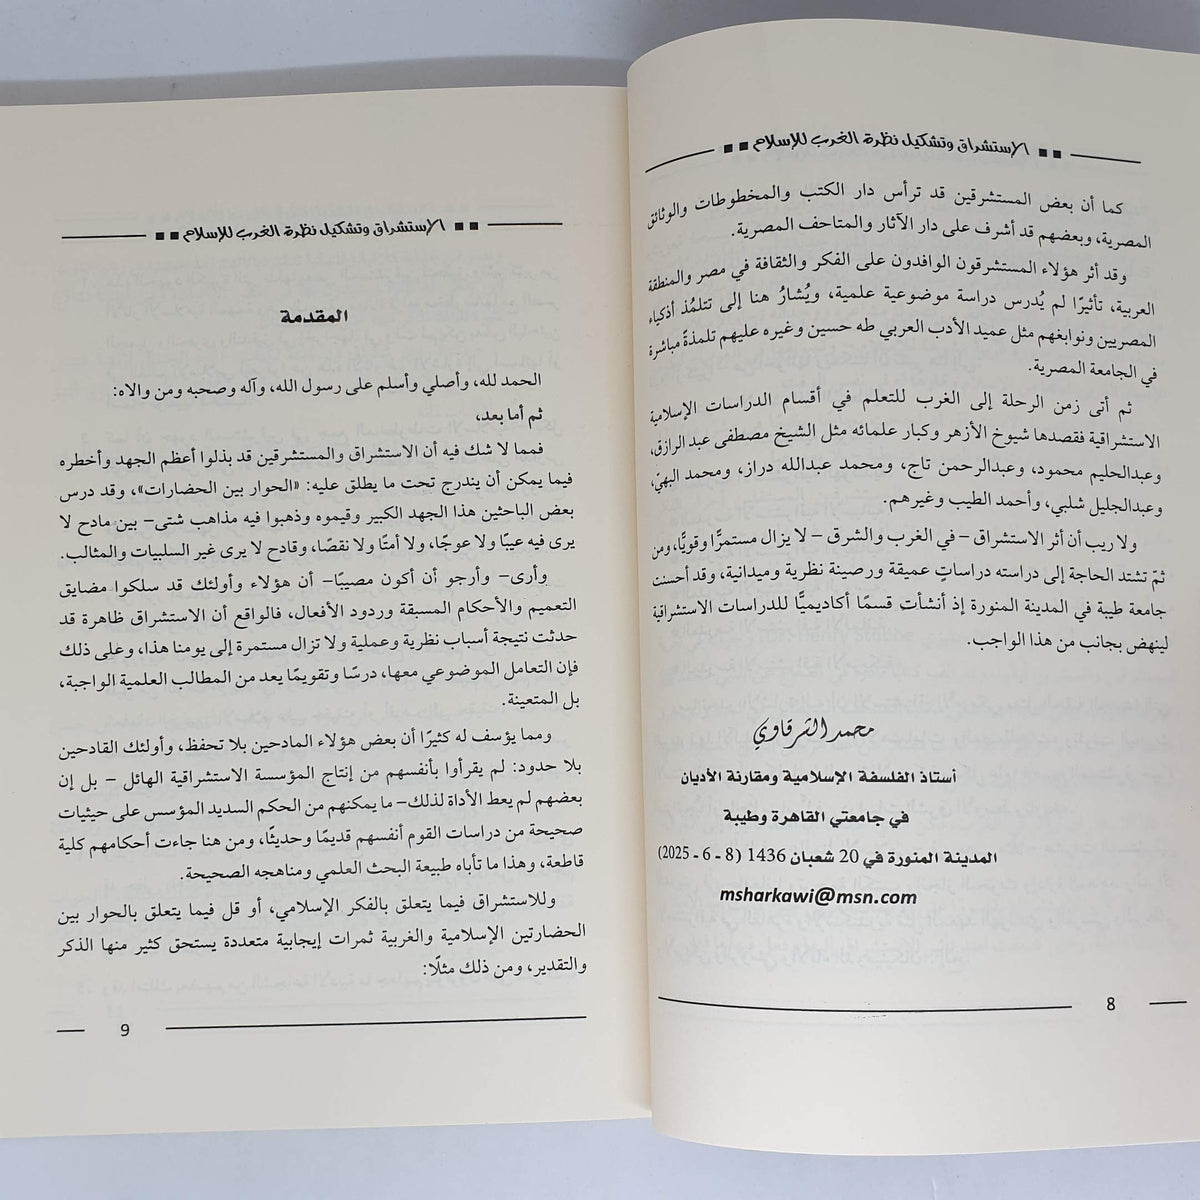 الاستشراق وتشكيل نظرة الغرب للإسلام
كما أن بعض المستشرقين قد ترأس دار الكتب والمخطوطات والوثائق
المصرية، وبعضهم قد أشرف على دار الآثار والمتاحف المصرية.
وقد أثر هؤلاء المستشرقون الوافدون على الفكر والثقافة في مصر والمنطقة
العربية، تأثيرًا لم يُدرس دراسة موضوعية علمية، ويُشارُ هنا إلى تتلمُذ أذكياء
المصريين ونوابغهم مثل عميد الأدب العربي طه حسين وغيره عليهم تلمذةً مباشرة
في الجامعة المصرية.
ثم أتى زمن الرحلة إلى الغرب للتعلم في أقسام الدراسات الإسلامية
الاستشراقية فقصدها شيوخ الأزهر وكبار علمائه مثل الشيخ مصطفى عبد الرازق،
وعبدالحليم محمود، وعبدالرحمن تاج، ومحمد عبدالله دراز، ومحمد البهيّ،
وعبدالجليل شلبي، وأحمد الطيب وغيرهم.
ولا ريب أن أثر الاستشراق – في الغرب والشرق – لا يزال مستمرًّا وقويًّا، ومن
ثمّ تشتد الحاجة إلى دراسته دراساتٍ عميقة ورصينة نظرية وميدانية، وقد أحسنت
جامعة طيبة في المدينة المنورة إذ أنشأت قسمًا أكاديميًّا للدراسات الاستشراقية
لينهض بجانب من هذا الواجب.
محمد الشرقاوي
أستاذ الفلسفة الإسلامية ومقارنة الأديان
في جامعتي القاهرة وطيبة
المدينة المنورة في 20 شعبان 1436 (8 - 6 - 2025)
msharkawi@msn.com
8
الاستشراق وتشكيل نظرة الغرب للإسلام
المقدمة
الحمد لله، وأصلي وأسلم على رسول الله، وآله وصحبه ومن والاه:
ثم أما بعد،
فمما لا شك فيه أن الاستشراق والمستشرقين قد بذلوا أعظم الجهد وأخطره
فيما يمكن أن يندرج تحت ما يطلق عليه: «الحوار بين الحضارات»، وقد درس
بعض الباحثين هذا الجهد الكبير وقيموه وذهبوا فيه مذاهب شتى– بين مادح لا
يرى فيه عيبًا ولا عوجًا، ولا أمتًا ولا نقصًا، وقادح لا يرى غير السلبيات والمثالب.
وأرى– وأرجو أن أكون مصيبًا– أن هؤلاء وأولئك قد سلكوا مضايق
التعميم والأحكام المسبقة وردود الأفعال، فالواقع أن الاستشراق ظاهرة قد
حدثت نتيجة أسباب نظرية وعملية ولا تزال مستمرة إلى يومنا هذا، وعلى ذلك
فإن التعامل الموضوعي معها، درسًا وتقويمًا يعد من المطالب العلمية الواجبة،
بل المتعينة.
ومما يؤسف له كثيرًا أن بعض هؤلاء المادحين بلا تحفظ، وأولئك القادحين
بلا حدود: لم يقرأوا بأنفسهم من إنتاج المؤسسة الاستشراقية الهائل – بل إن
بعضهم لم يعط الأداة لذلك– ما يمكنهم من الحكم السديد المؤسس على حيثيات
صحيحة من دراسات القوم أنفسهم قديمًا وحديثًا، ومن هنا جاءت أحكامهم كلية
قاطعة، وهذا ما تأباه طبيعة البحث العلمي ومناهجه الصحيحة.
وللاستشراق فيما يتعلق بالفكر الإسلامي، أو قل فيما يتعلق بالحوار بين
الحضارتين الإسلامية والغربية ثمرات إيجابية متعددة يستحق كثير منها الذكر
والتقدير، ومن ذلك مثلًا:
9